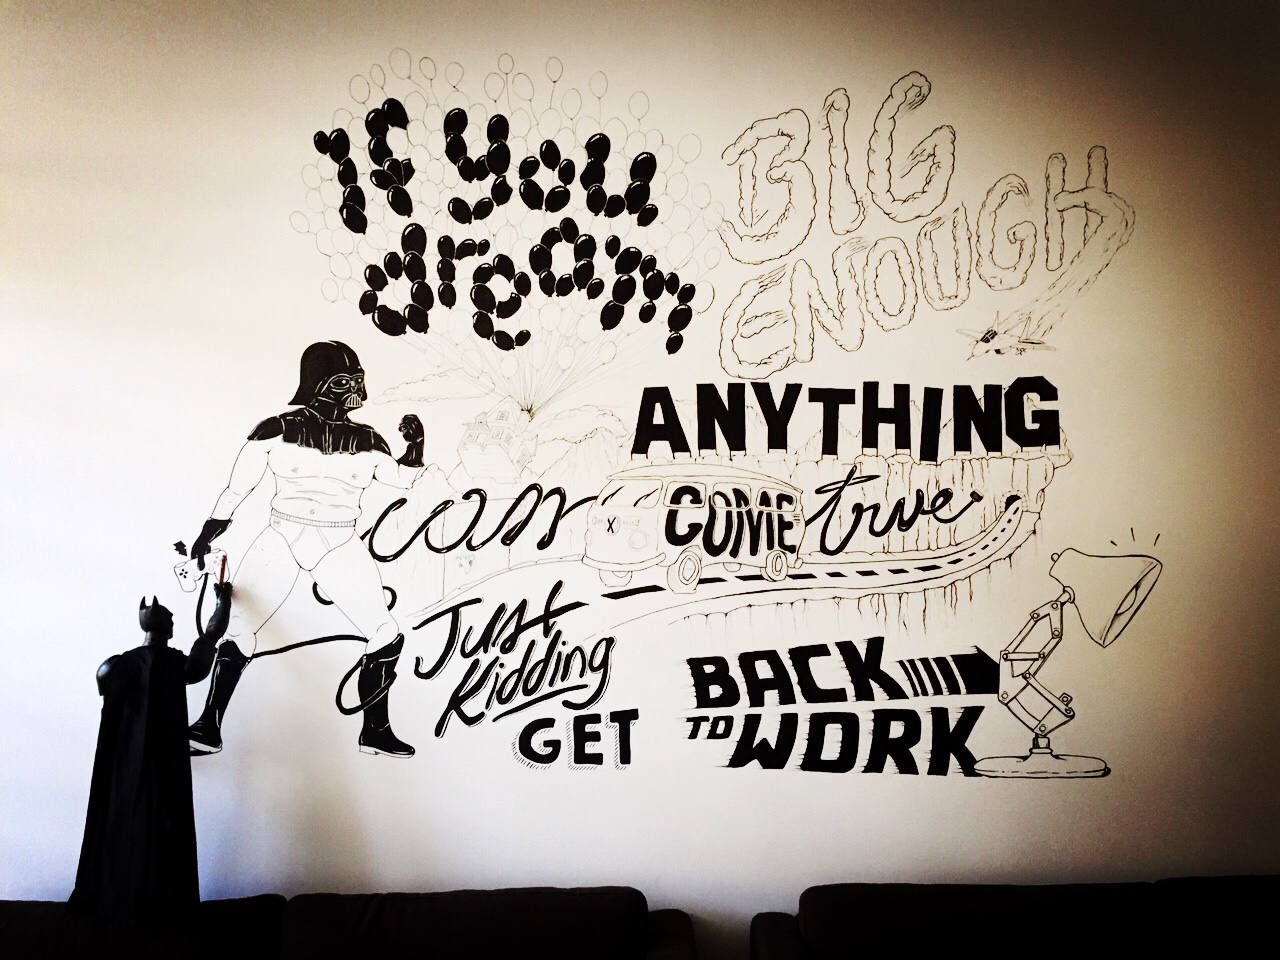 If you
dream
BIG
ENOUGH
ANYTHING
can COME true
Just
Kidding
GET
BACK
TO WORK